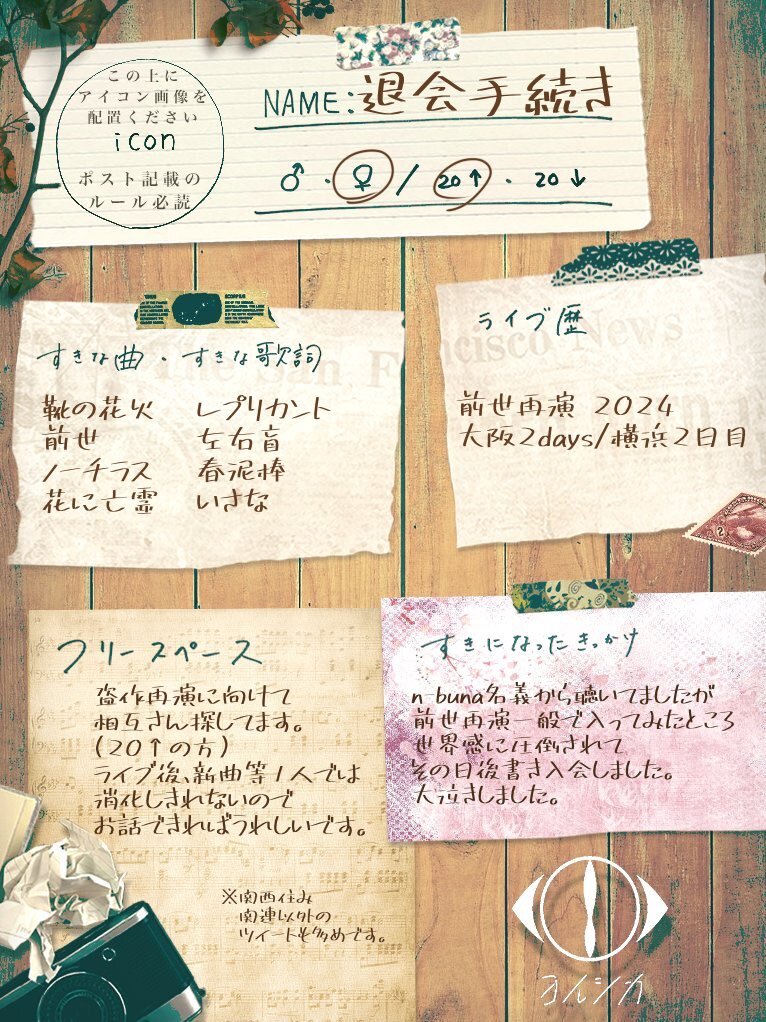 この上に
アイコン画像を
配置ください
icon
ポスト記載の
ルール必読
NAME:退会手続き
♂・♀/20↑・20↓
すきな曲・すきな歌詞
靴の花火 レプリカント
前世 左右盲
ノーチラス 春泥棒
花に亡霊 いさな
ライブ歴
前世再演 2024
大阪2days/横浜2日目
フリースペース
盗作再演に向けて
相互さん探してます。
(20↑の方)
ライブ後、新曲等1人では
消化しきれないので
お話できればうれしいです。
※関西住み
関連以外の
ツイートも多めです。
すきになったきっかけ
n-buna名義から聴いてましたが
前世再演一般で入ってみたところ
世界感に圧倒されて
その日後書き入会しました。
大泣きしました。
ヨルシカ